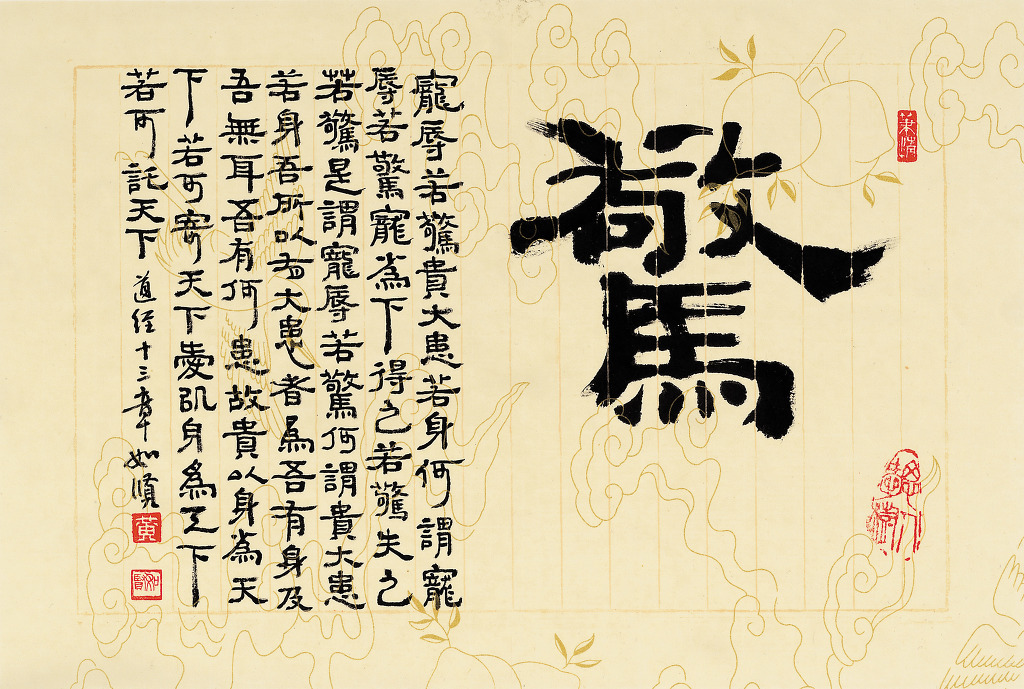 驚
寵辱若驚貴大患若身何謂寵
辱若驚寵為下得之若驚失之
若驚是謂寵辱若驚何謂貴大患
若身吾所以有大患者為吾有身及
吾無耳吾有何患故貴以身為天
下若可寄天下愛以身為天下
若可託天下 道經十三章 如賢
黃
如賢